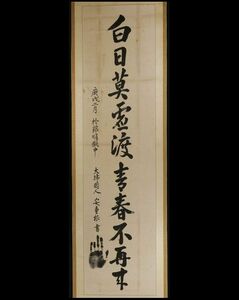 白日莫虛渡靑春不再來
庚戌三月 於旅順獄中 大韓國人 安重根 書